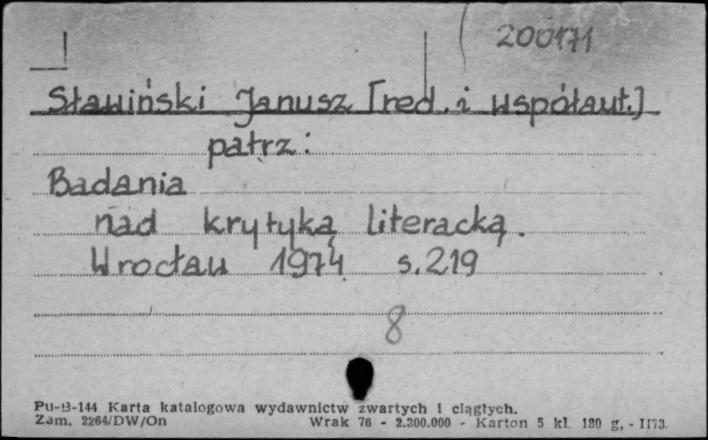 200171
Sławiński Janusz [red. i współaut.]
patrz:
Badania
nad krytyką literacką.
Wrocław 1974 s. 219
8
Pu-B-144 Karta katalogowa wydawnictw zwartych i ciągłych.
Zam. 2264/DW/On Wrak 76 - 2.300.000 - Karton 5 kl. 180 g, - II73.